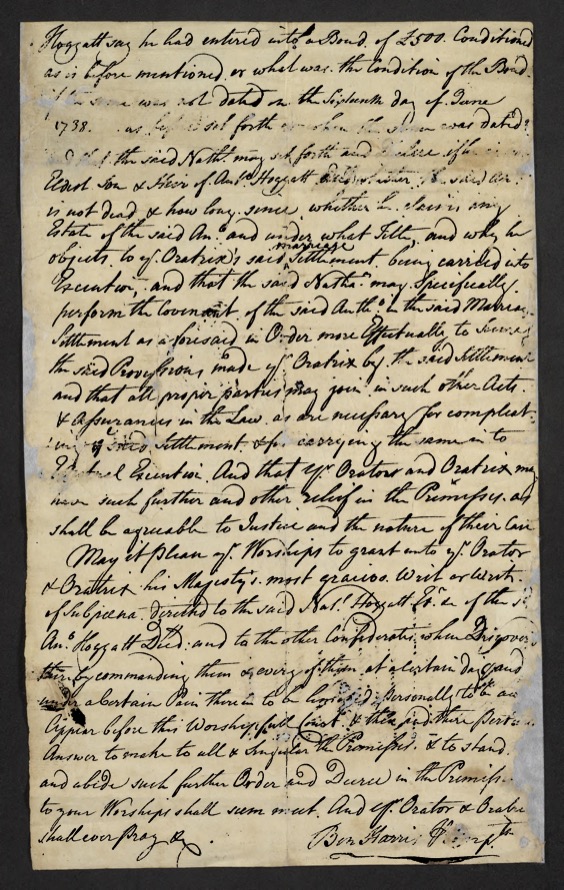 Hoggatt say he had entered into a Bond of £500 Conditioned
as is before mentioned or what was the Condition of the Bond
was not dated on the Sixteenth day of June
1738. as set forth or when the same was dated?
that the said Nath.l may set forth and
Eldest Son & Heir of Ant.o Hoggatt
is not dead & how long since, whether he claims any
Estate of the said An.o and under what Title, and why he
objects to y.r Oratrix's said marriage Settlement being carried into
Execution, and that the said Nath.l may Specifically
perform the Covenant of the said Anth.o in the said Marriage
Settlement as aforesaid in Order more Effectually to secure
the said Provissions made y.r Oratrix by the said Settlement
and that all proper parties may join in such other Acts
& Assurances in the Law as are necessary for compleat-
ing said Settlement & for carrying the same in to
Effectual Execution. And that y.r Orators and Oratrix may
have such further and other relief in the Premisses as
shall be agreeable to Justice and the nature of their Case
May it Please y.r Worships to grant unto y.r Orator
& Oratrix his Majesty's most gracios Writ or Writs
of Subpœna directed to the said Nat.l Hoggatt Ex.r &c of the s.d
An.o Hoggatt Dec'd and to the other Confederates when Discover'd
thereby commanding them & every of them at a certain day and
under a Certain Pain therein to be personally to be and
Appear before this Worshipfull Court & then and there
Answer to make to all & Singular the Premisses & to stand
and abide such further Order and Decree in the Premisses
to your Worships shall seem meet. And y.r Orator & Oratrix
shall ever Pray &c.
Ben Harris